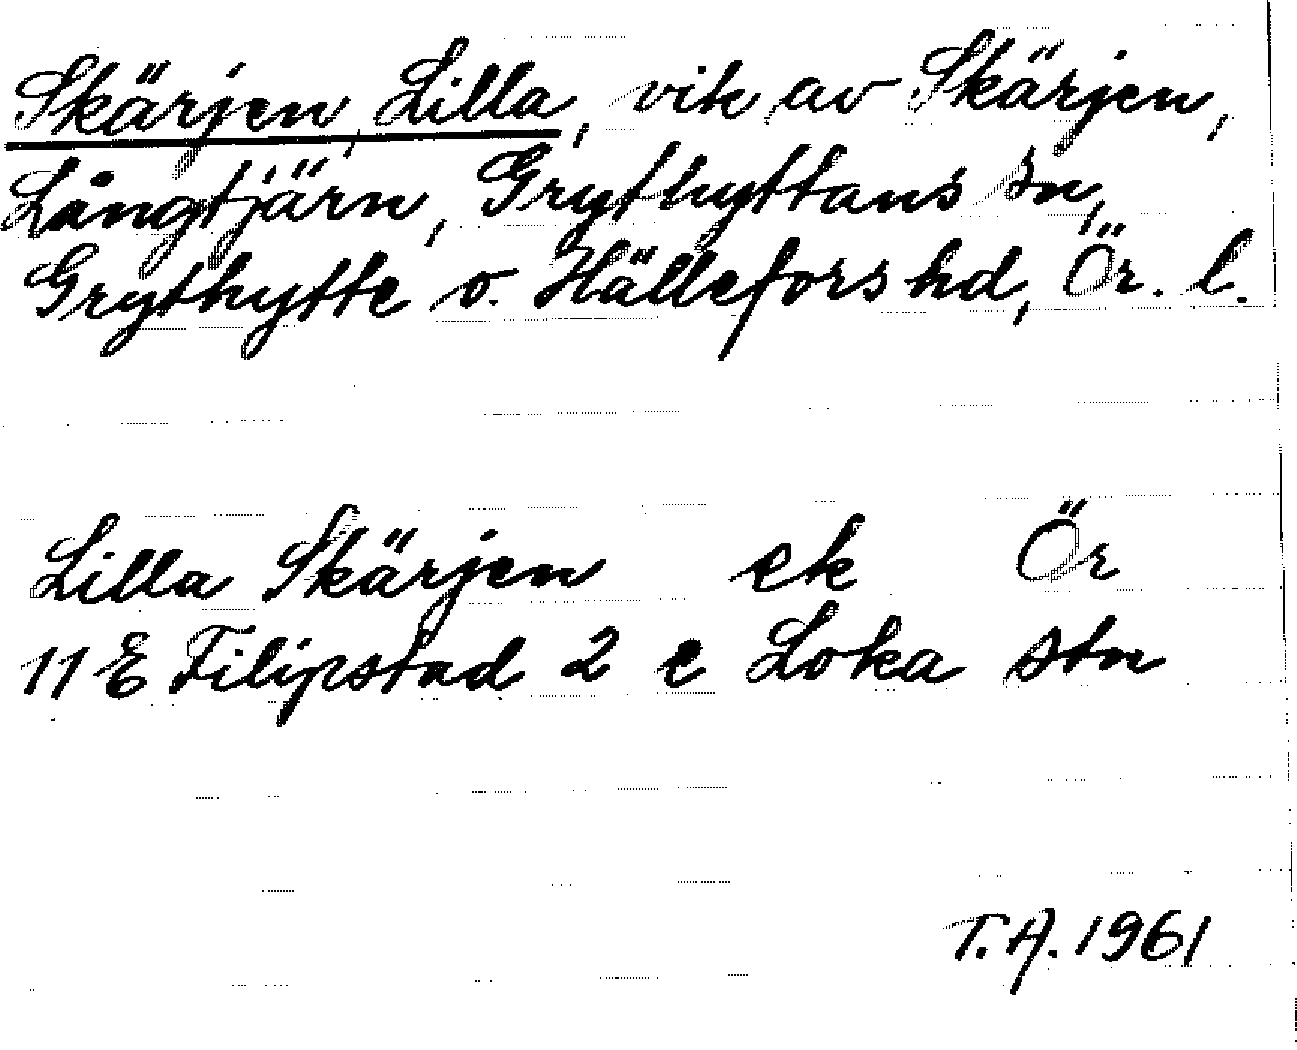 Skärjen, Lilla, vik av Skärjen,
Långtjärn, Grythyttans sn,
Grythytte o. Hällefors hd, Ör. l.
Lilla Skärjen ek Ör
11 E Filipstad 2 c Loka stn
T.A. 1961